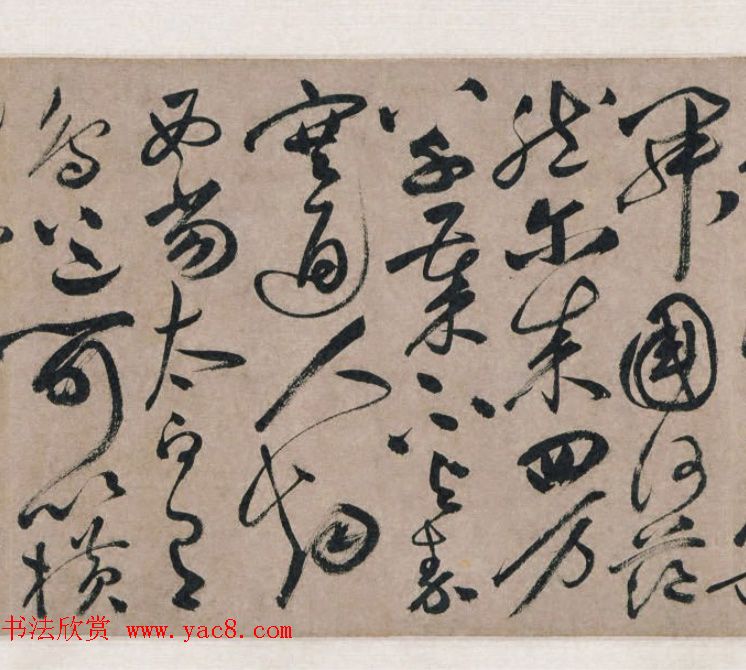 開國何茫
然尔来四万
八千歲不与秦
塞通人烟
西當太白有
鳥道可以橫
书法欣赏 www.yac8.com